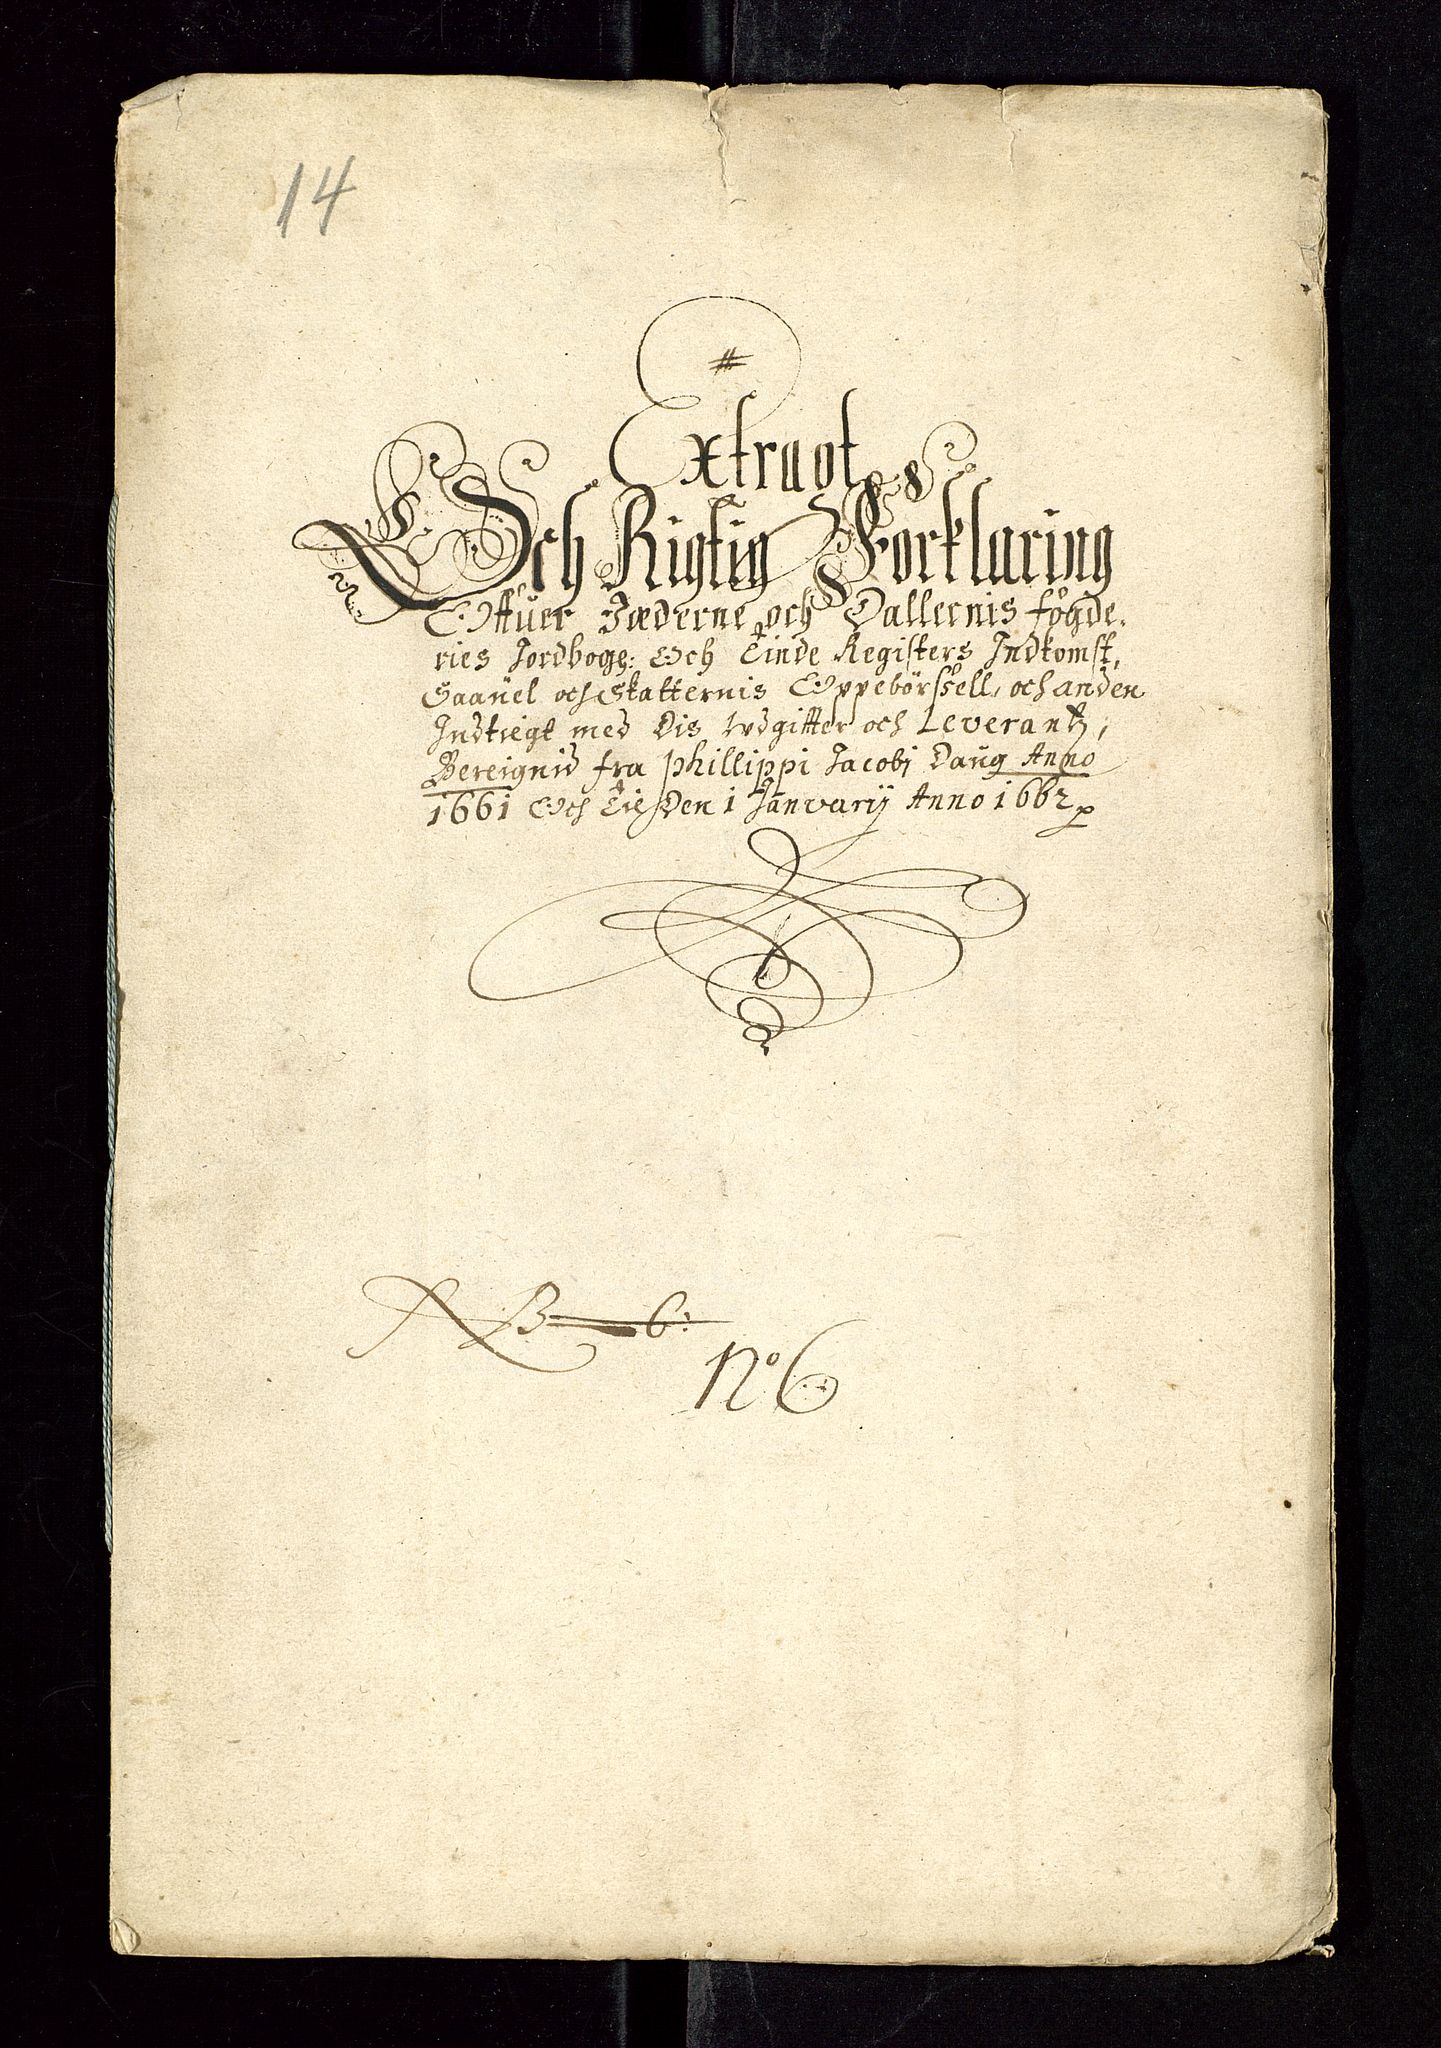 14
#
Extragt
Och Rigtig Forklaring
Offuer Jæderne och Dallernis fögde,
ries Jordbogs: Och Tinde Registers Indkomst,
Saauel och Skatternis Oppebörssell, och anden
Indtiegt med Dis Wdgiffter och Leverantz,
Bereignid fra Phillippi Jacobj Daug Anno
1661 Och Til Den 1 Januarij Anno 1662
B 6:
No 6